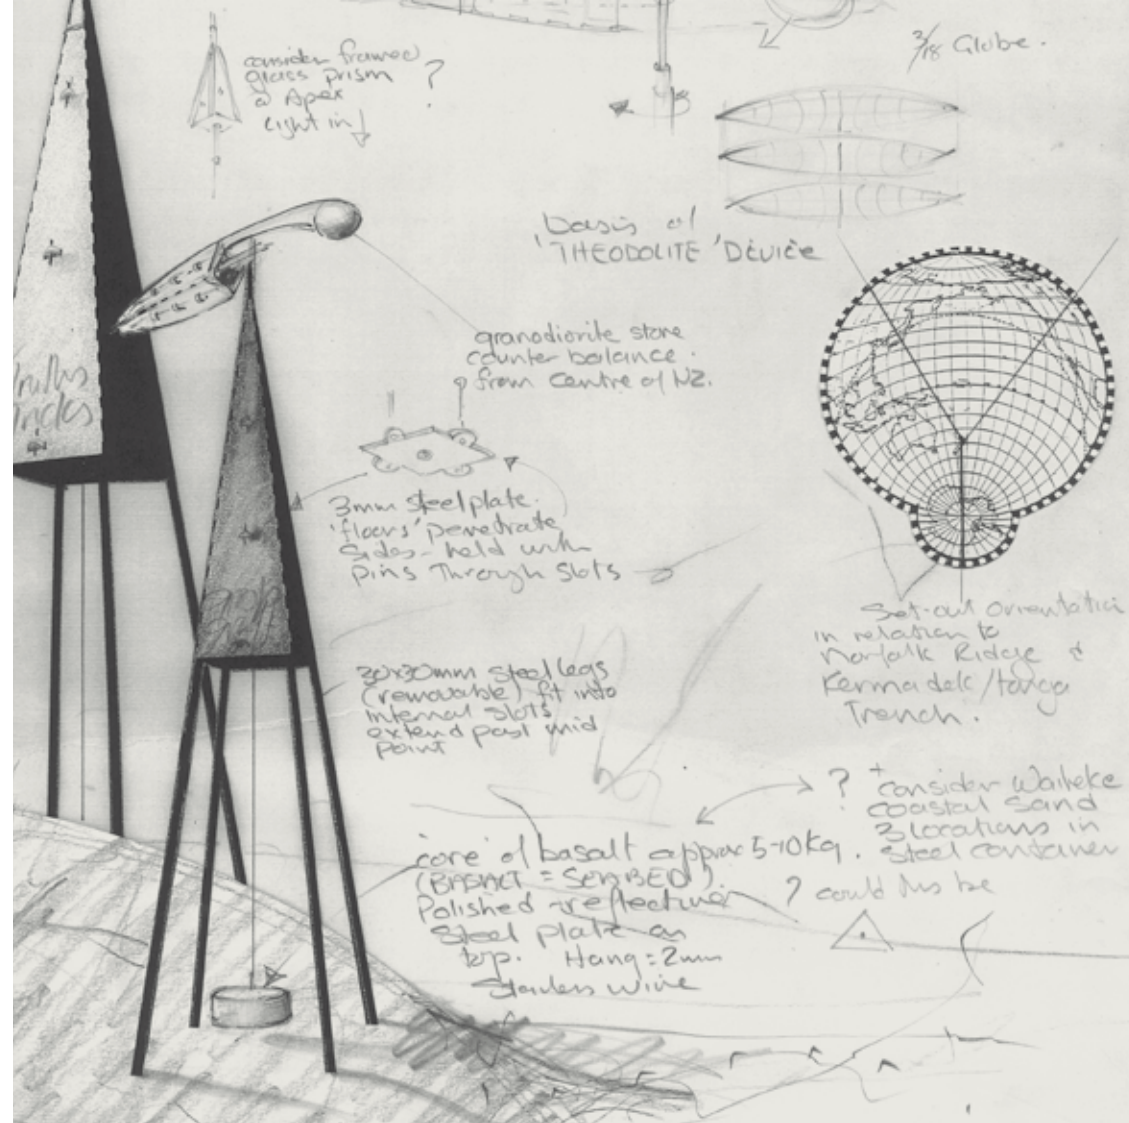 consider framed
glass prism ?
@ Apex
light in
3/18 Globe.
basis of
'THEODOLITE' DEVICE
granodiorite stone
counter balance.
from Centre of NZ.
3mm steel plate.
'floors' penetrate
sides - held with
pins through slots
Set-out orientation
in relation to
Norfolk Ridge &
Kermadek/tonga
Trench.
30x30mm steel legs
(removable) fit into
internal slots
extend past mid
point
? + consider Waiheke
coastal sand
3 locations in
steel container
? could this be
core of basalt approx 5-10kg.
(BASALT = SEABED)
Polished reflecting
Steel plate on
top. Hang = 2mm
Stainless wire